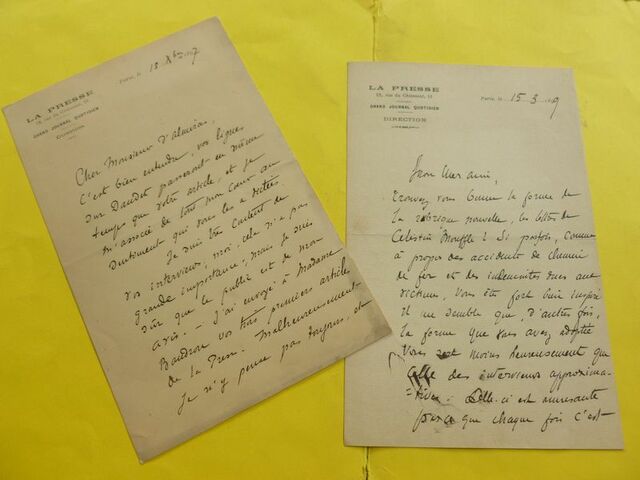 LA PRESSE
12, rue du Croissant, 12
GRAND JOURNAL QUOTIDIEN
DIRECTION
Paris, le 18 Xbre 1907
Cher Monsieur d'Alméras,
C'est bien entendu, vos lignes
sur Daudet passeront en même
temps que votre article, et je
m'associe de tout mon cœur au
sentiment qui vous les a dictées.
Je suis très content de
vos interviews, moi : cela n'a pas
grande importance ; mais je suis
sûr que le public est de mon
avis. – J'ai envoyé à Madame
vos trois premiers articles
de la Presse. Malheureusement
je n'y pense pas toujours, et
LA PRESSE
12, rue du Croissant, 12
GRAND JOURNAL QUOTIDIEN
DIRECTION
Paris, le 15.3.09
Mon cher ami,
Trouvez-vous bonne la forme de
la rubrique nouvelle, les lettres de
Célestin Mouffle ? Si parfois, comme
à propos des accidents de chemin
de fer et des indemnités dues aux
victimes, vous êtes fort bien inspiré
il me semble que, d'autres fois,
la forme que vous avez adoptée
vous est moins heureusement que
celle des interviews approxima-
=tives. Celle-ci est amusante
parce que chaque fois c'est